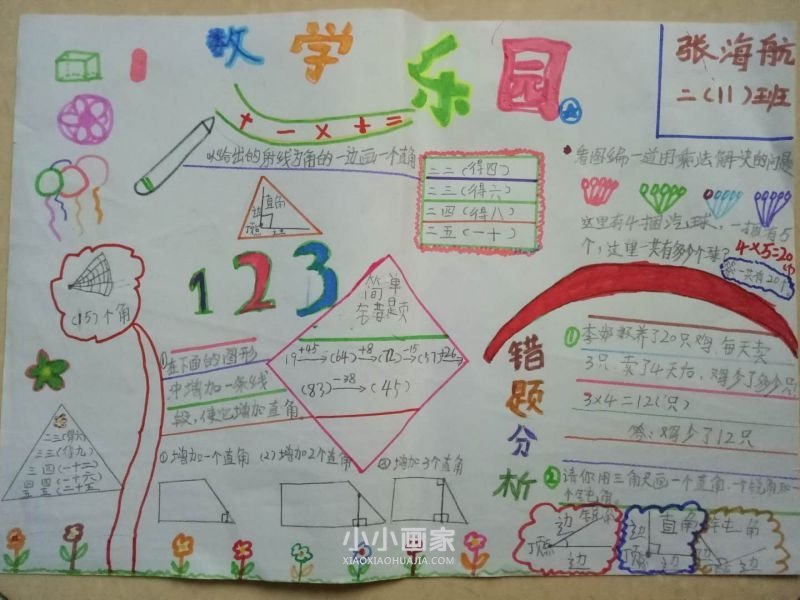 数学乐园
张海航
二(11)班
+ - × + =
以给出的射线为角的一边画一个直角
边
直角
顶点
边
二二(得四)
二三(得六)
二四(得八)
二五(一十)
看图编一道用乘法解决的问题
这里有4捆汽球,一捆有5
个,这里一共有多少个球?
4×5=20(个)
答:一共有20个
(15)个角
123
简单
答题
19 +45 (64) +8 (72) -15 (57) +26
(83) -38 (45)
①在下面的图形
中增加一条线
段,使它增加直角
①增加一个直角
(2)增加2个直角
③增加3个直角
二三(得六)
三三(得九)
三四(一十二)
四四(一十六)
错题分析
①李奶奶养了20只鸡,每天卖
3只,卖了4天后,鸡少了多少只
3×4=12(只)
答:鸡少了12只
②请你用三角尺画一个直角、一个锐角和
个钝角。
边
锐角
顶点
边
边
直角
顶点
边
钝角
边
小小画家
XIAOXIAOHUAJIA.COM